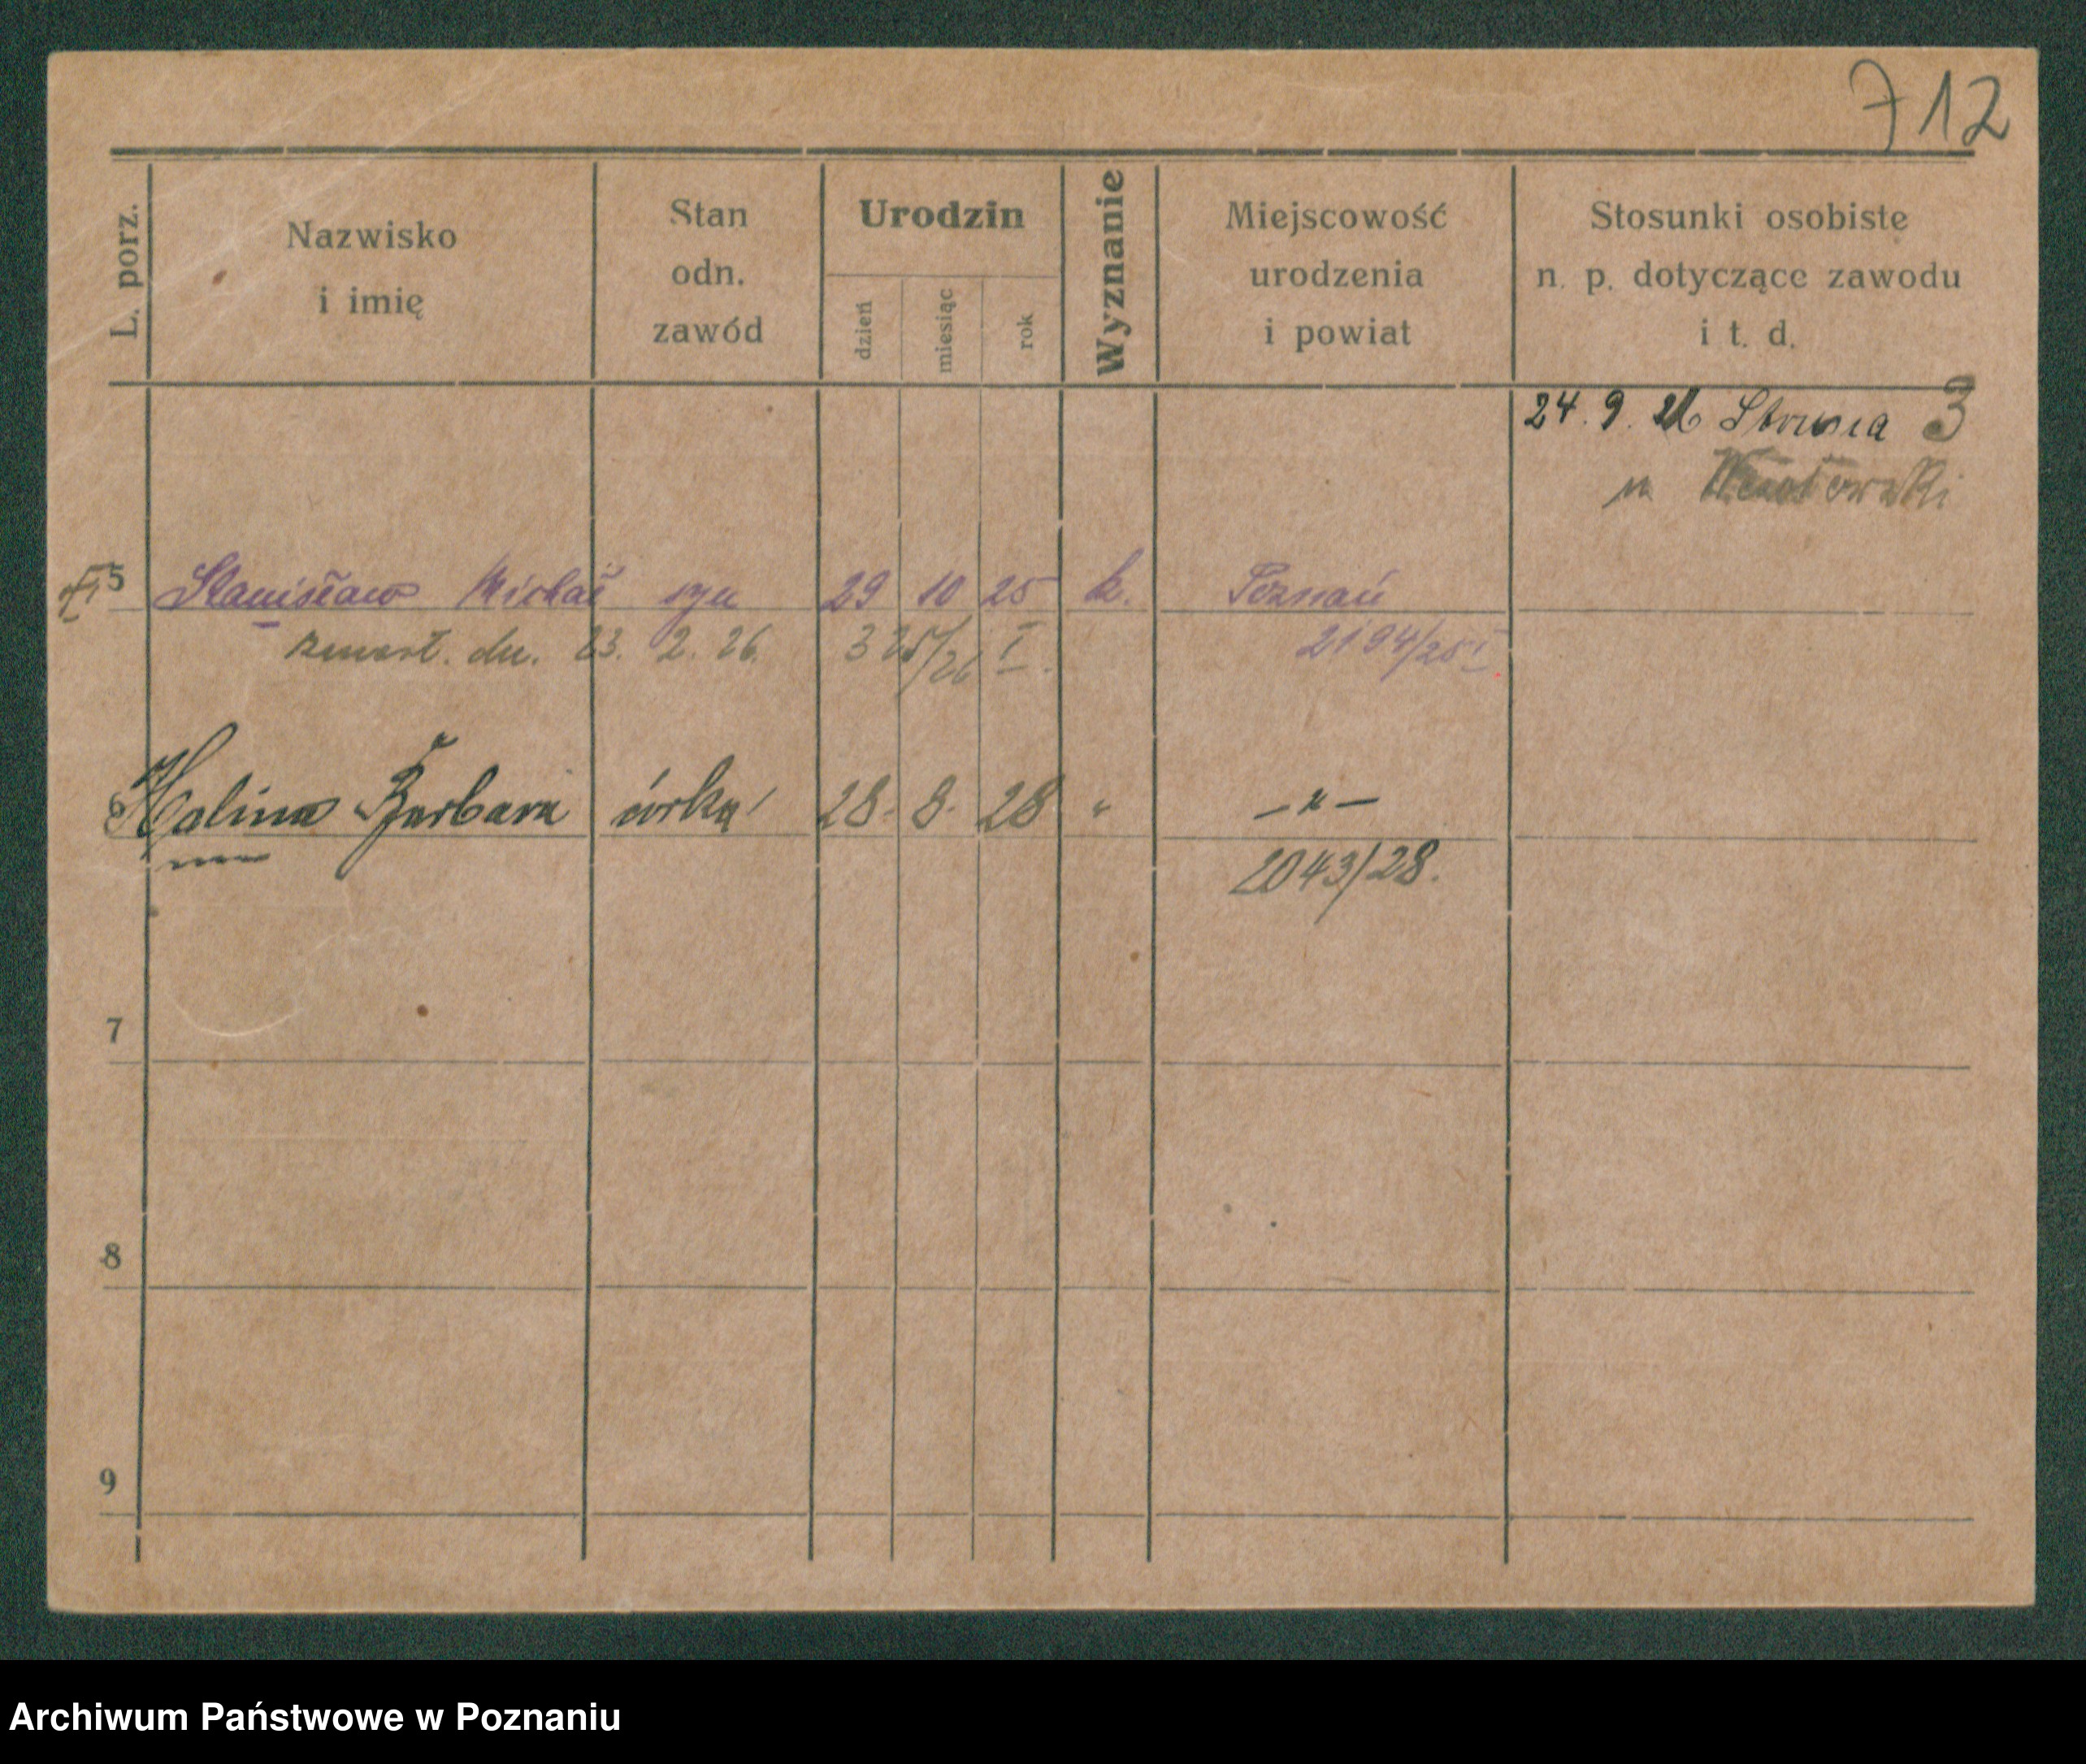 712
L. porz.
Nazwisko
i imię
Stan
odn.
zawód
Urodzin
dzień
miesiąc
rok
Wyznanie
Miejscowość
urodzenia
i powiat
Stosunki osobiste
n. p. dotyczące zawodu
i t. d.
24. 9. 26 Strusia 3
u
5 Stanisław Michał syn 29 10 25 k. Poznań
zmarł. dn. 23. 2. 26. 325/26 I. 2194/25 I
Halina Barbara córka 28. 8. 28 " —"—
2043/28.
7
8
9
Archiwum Państwowe w Poznaniu